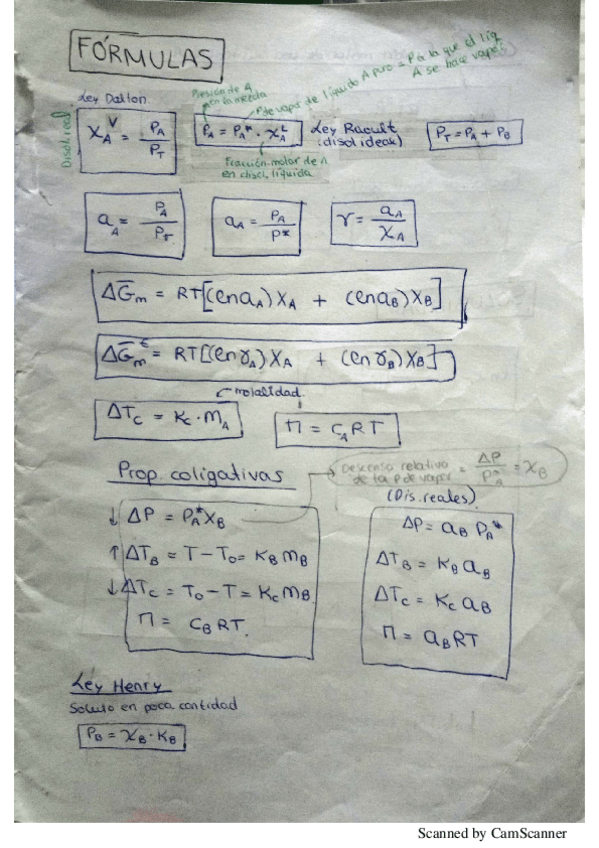 FÓRMULAS
Ley Dalton.
Presión de A
en la mezcla
P de vapor de líquido A puro = P a la que el líq
A se hace vapor
Disol ideal
X_A^V = P_A / P_T
P_A = P_A* · X_A^L
Ley Raoult
(disol ideal)
P_T = P_A + P_B
Fracción molar de A
en disol. líquida
a_A = P_A / P_T
a_A = P_A / P*
γ = a_A / X_A
ΔG̅_m = RT[(ln a_A) X_A + (ln a_B) X_B]
ΔG̅_m^E = RT[(ln γ_A) X_A + (ln γ_B) X_B]
molalidad
ΔT_c = K_c · m_A
Π = C_A RT
Prop. coligativas
Descenso relativo
de la P de vapor = ΔP / P_A* = X_B
(Dis. reales)
↓ ΔP = P_A* X_B
↑ ΔT_B = T - T_0 = K_B m_B
↓ ΔT_c = T_0 - T = K_c m_B
Π = C_B RT.
ΔP = a_B P_A*
ΔT_B = K_B a_B
ΔT_c = K_c a_B
Π = a_B RT
Ley Henry
Soluto en poca cantidad
P_B = X_B · K_B
Scanned by CamScanner